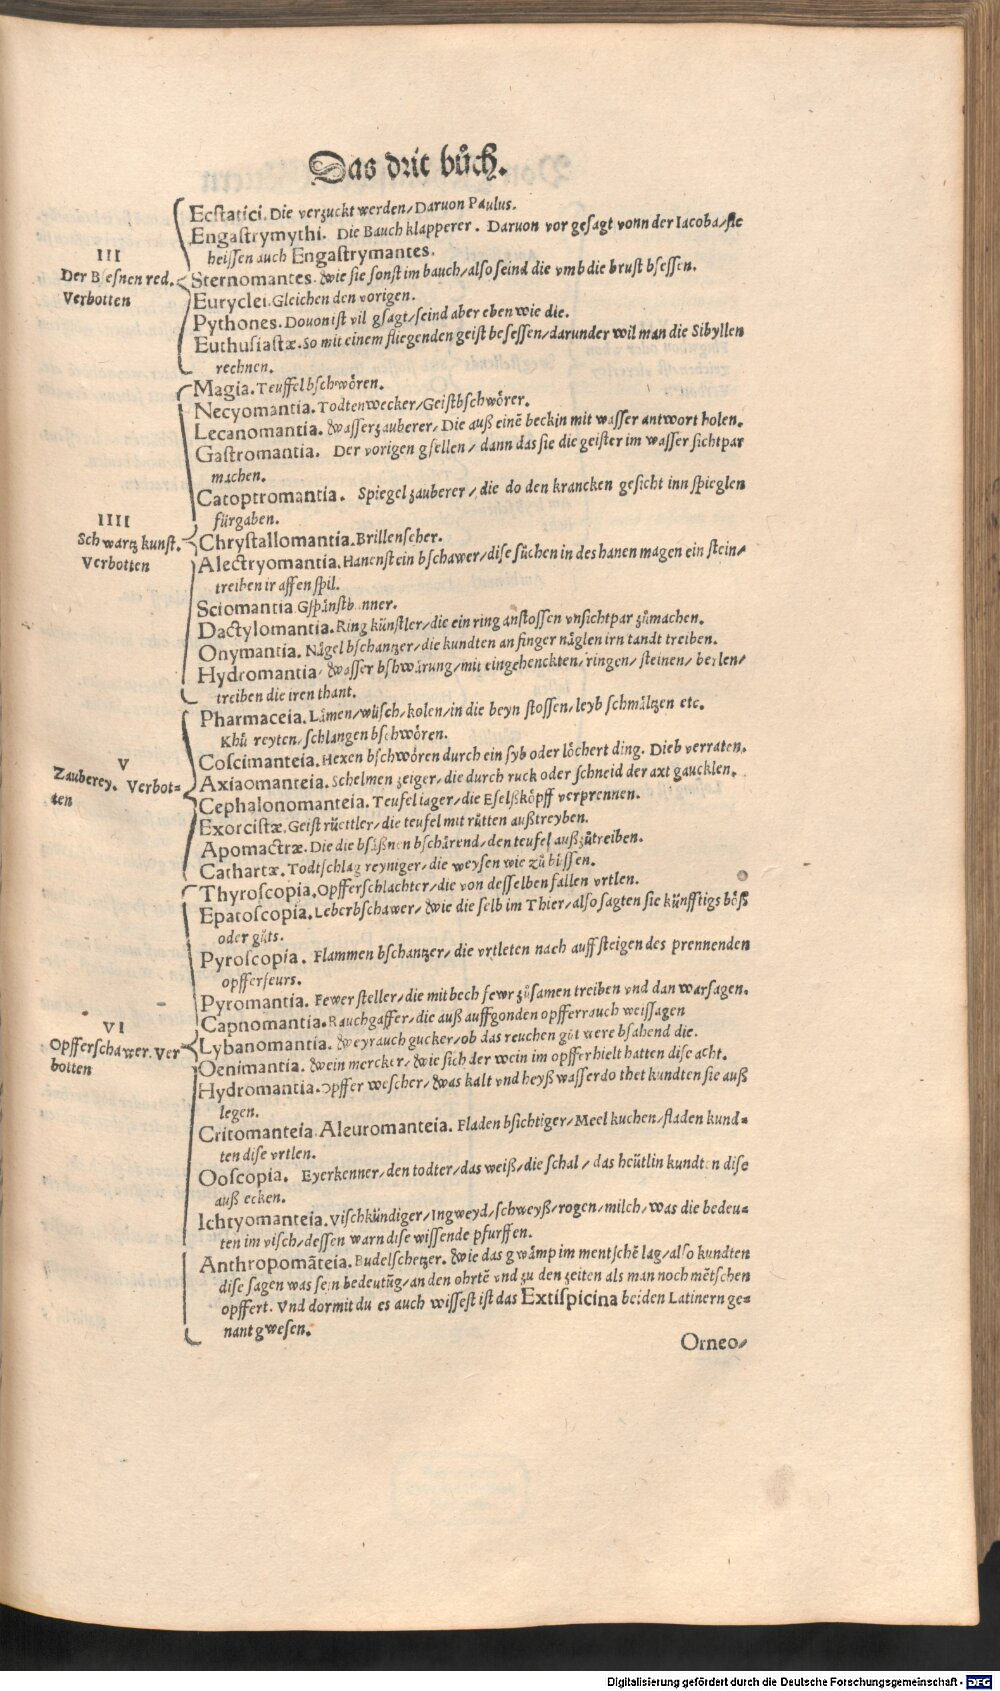 Das drit bůch.
Ecstatici. Die verzuckt werden/ Daruon Paulus.
Engastrymythi. Die Bauch klapperer. Daruon vor gesagt vonn der Iacoba/ sie
heissen auch Engastrymantes.
III
Der Bsesnen red.
Verbotten
Sternomantes. Wie sie sonst im bauch/ also seind die vmb die brust bsessen.
Euryclei. Gleichen den vorigen.
Pythones. Douon ist vil gsagt/ seind aber eben wie die.
Euthusiastæ. So mit einem fliegenden geist besessen/ darunder wil man die Sibyllen
rechnen.
Magia. Teuffel bschwören.
Necyomantia. Todtenwecker/ Geistbschwörer.
Lecanomantia. Wasserzauberer/ Die auß einē beckin mit wasser antwort holen.
Gastromantia. Der vorigen gsellen/ dann das sie die geister im wasser sichtpar
machen.
Catoptromantia. Spiegel zauberer/ die do den krancken gesicht inn spieglen
fürgaben.
IIII
Schwartz kunst.
Verbotten
Chrystallomantia. Brillenseher.
Alectryomantia. Hanenstein bschawer/ dise sůchen in des hanen magen ein stein/
treiben ir affen spil.
Sciomantia Gspånstbanner.
Dactylomantia. Ring künstler/ die ein ring anstossen vnsichtpar zůmachen.
Onymantia. Någel bschantzer/ die kundten an finger någlen irn tandt treiben.
Hydromantia/ Wasser bschwårung/ mit eingehenckten/ ringen/ steinen/ berlen/
treiben die iren thant.
Pharmaceia. Låmen/ wüsch/ kolen/ in die beyn stossen/ leyb schmåltzen etc.
Khů reyten/ schlangen bschwören.
V
Zauberey. Verbot-
ten
Coscimanteia. Hexen bschwören durch ein syb oder löchert ding. Dieb verraten.
Axiaomanteia. Schelmen zeiger/ die durch ruck oder schneid der axt gaucklen.
Cephalonomanteia. Teufel iager/ die Eselßköpff verprennen.
Exorcistæ. Geist rüettler/ die teufel mit růtten außtreyben.
Apomactræ. Die die bsåßnen bschårend/ den teufel außzůtreiben.
Cathartæ. Todtschlag reyniger/ die weysen wie zů büssen.
Thyroscopia. Opfferschlachter/ die von desselben fallen vrtlen.
Epatoscopia. Leberbschawer/ Wie die selb im Thier/ also sagten sie künfftigs böß
oder gůts.
Pyroscopia. Flammen bschantzer/ die vrtleten nach auffsteigen des prennenden
opfferfeurs.
Pyromantia. Fewer steller/ die mit bech fewr zůsamen treiben vnd dan warsagen.
Capnomantia. Rauchgaffer/ die auß auffgonden opfferrauch weissagen
VI
Opfferschawer. Ver
botten
Lybanomantia. Weyrauch gucker/ ob das reuchen gůt were bsahend die.
Oenimantia. Wein mercker/ Wie sich der wein im opffer hielt hatten dise acht.
Hydromantia. Opffer wescher/ Was kalt vnd heyß wasser do thet kundten sie auß
legen.
Critomanteia. Aleuromanteia. Fladen bsichtiger/ Meel kuchen/ fladen kund-
ten dise vrtlen.
Ooscopia. Eyerkenner/ den todter/ das weiß/ die schal/ das heütlin kundten dise
auß ecken.
Ichtyomanteia. Vischkündiger/ Ingweyd/ schweyß/ rogen/ milch/ was die bedeu-
ten im visch/ dessen warn dise wissende pfurffen.
Anthropomāteia. Budelschetzer. Wie das gwåmp im mentschē lag/ also kundten
dise sagen was sein bedeutūg/ an den ohrtē vnd zu den zeiten als man noch mētschen
opffert. Vnd dormit du es auch wissest ist das Extispicina bei den Latinern ge-
nant gwesen.
Orneo/
Digitalisierung gefördert durch die Deutsche Forschungsgemeinschaft - DFG